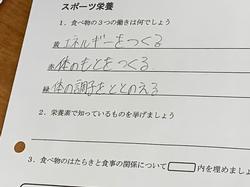 スポーツ栄養
1．食べ物の3つの働きは何でしょう
黄 エネルギーをつくる
赤 体のもとをつくる
緑 体の調子をととのえる
2．栄養素で知っているものを挙げましょう
3．食べ物のはたらきと食事の関係について 内を埋めましょ